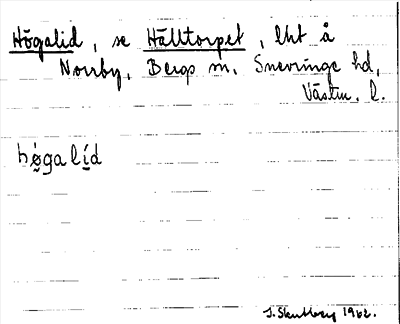 Högalid, se Hälltorpet, lht å
Norrby, Bergs sn, Snevringe hd,
Västm. l.
hǿgalíd
J. Stenberg 1962.